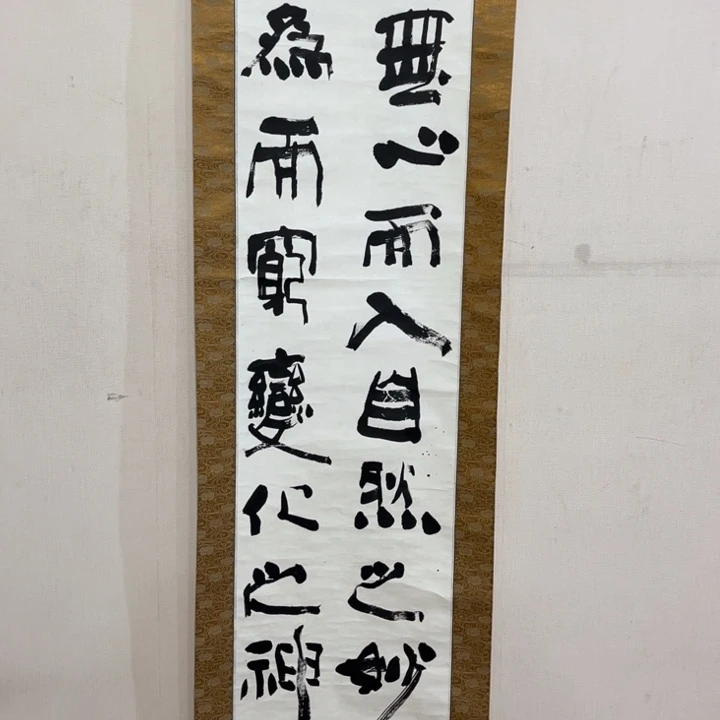 無心而入自然之妙
為而窮變化之神